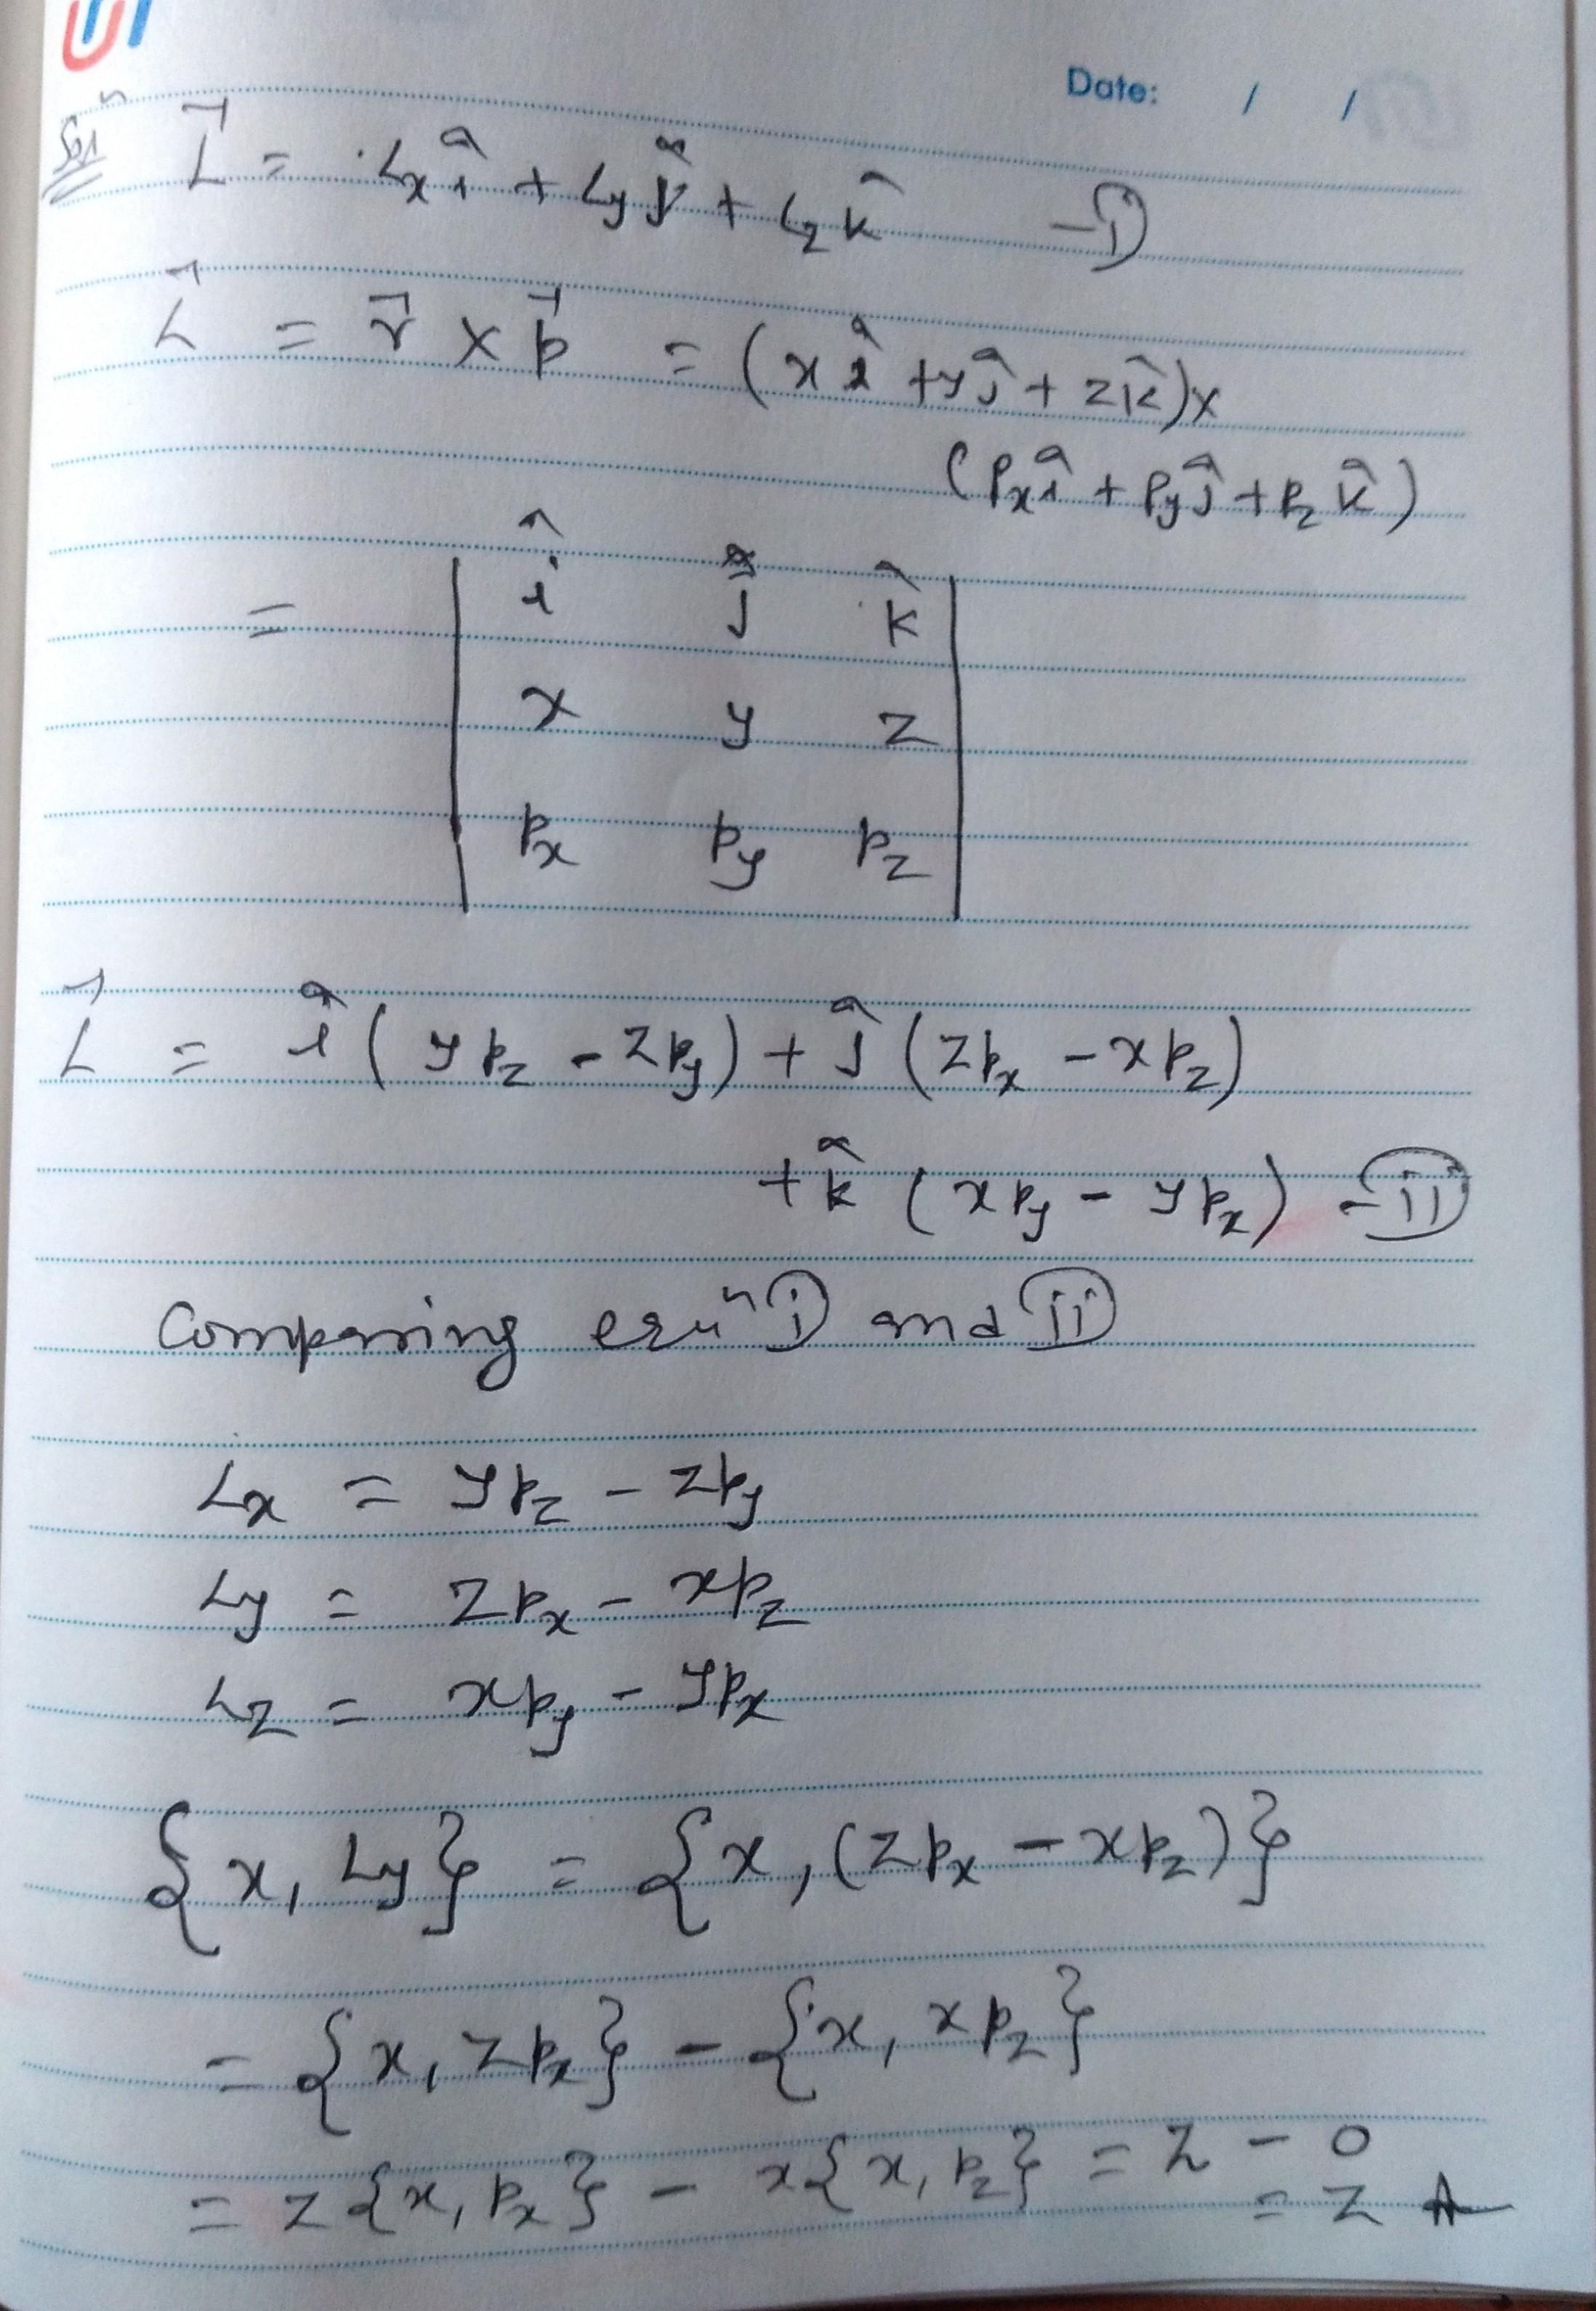 Date: / /
Solⁿ L⃗ = Lx î + Ly ĵ + Lz k̂ - (i)
L⃗ = r⃗ × p⃗ = (x î + y ĵ + z k̂) ×
(px î + py ĵ + pz k̂)
= | î ĵ k̂ |
| x y z |
| px py pz |
L⃗ = î ( y pz - z py) + ĵ (z px - x pz)
+ k̂ (x py - y px) - (ii)
Comparing equⁿ (i) and (ii)
Lx = y pz - z py
Ly = z px - x pz
Lz = x py - y px
{x, Ly} = {x, (z px - x pz)}
= {x, z px} - {x, x pz}
= z {x, px} - x {x, pz} = z - 0
= z